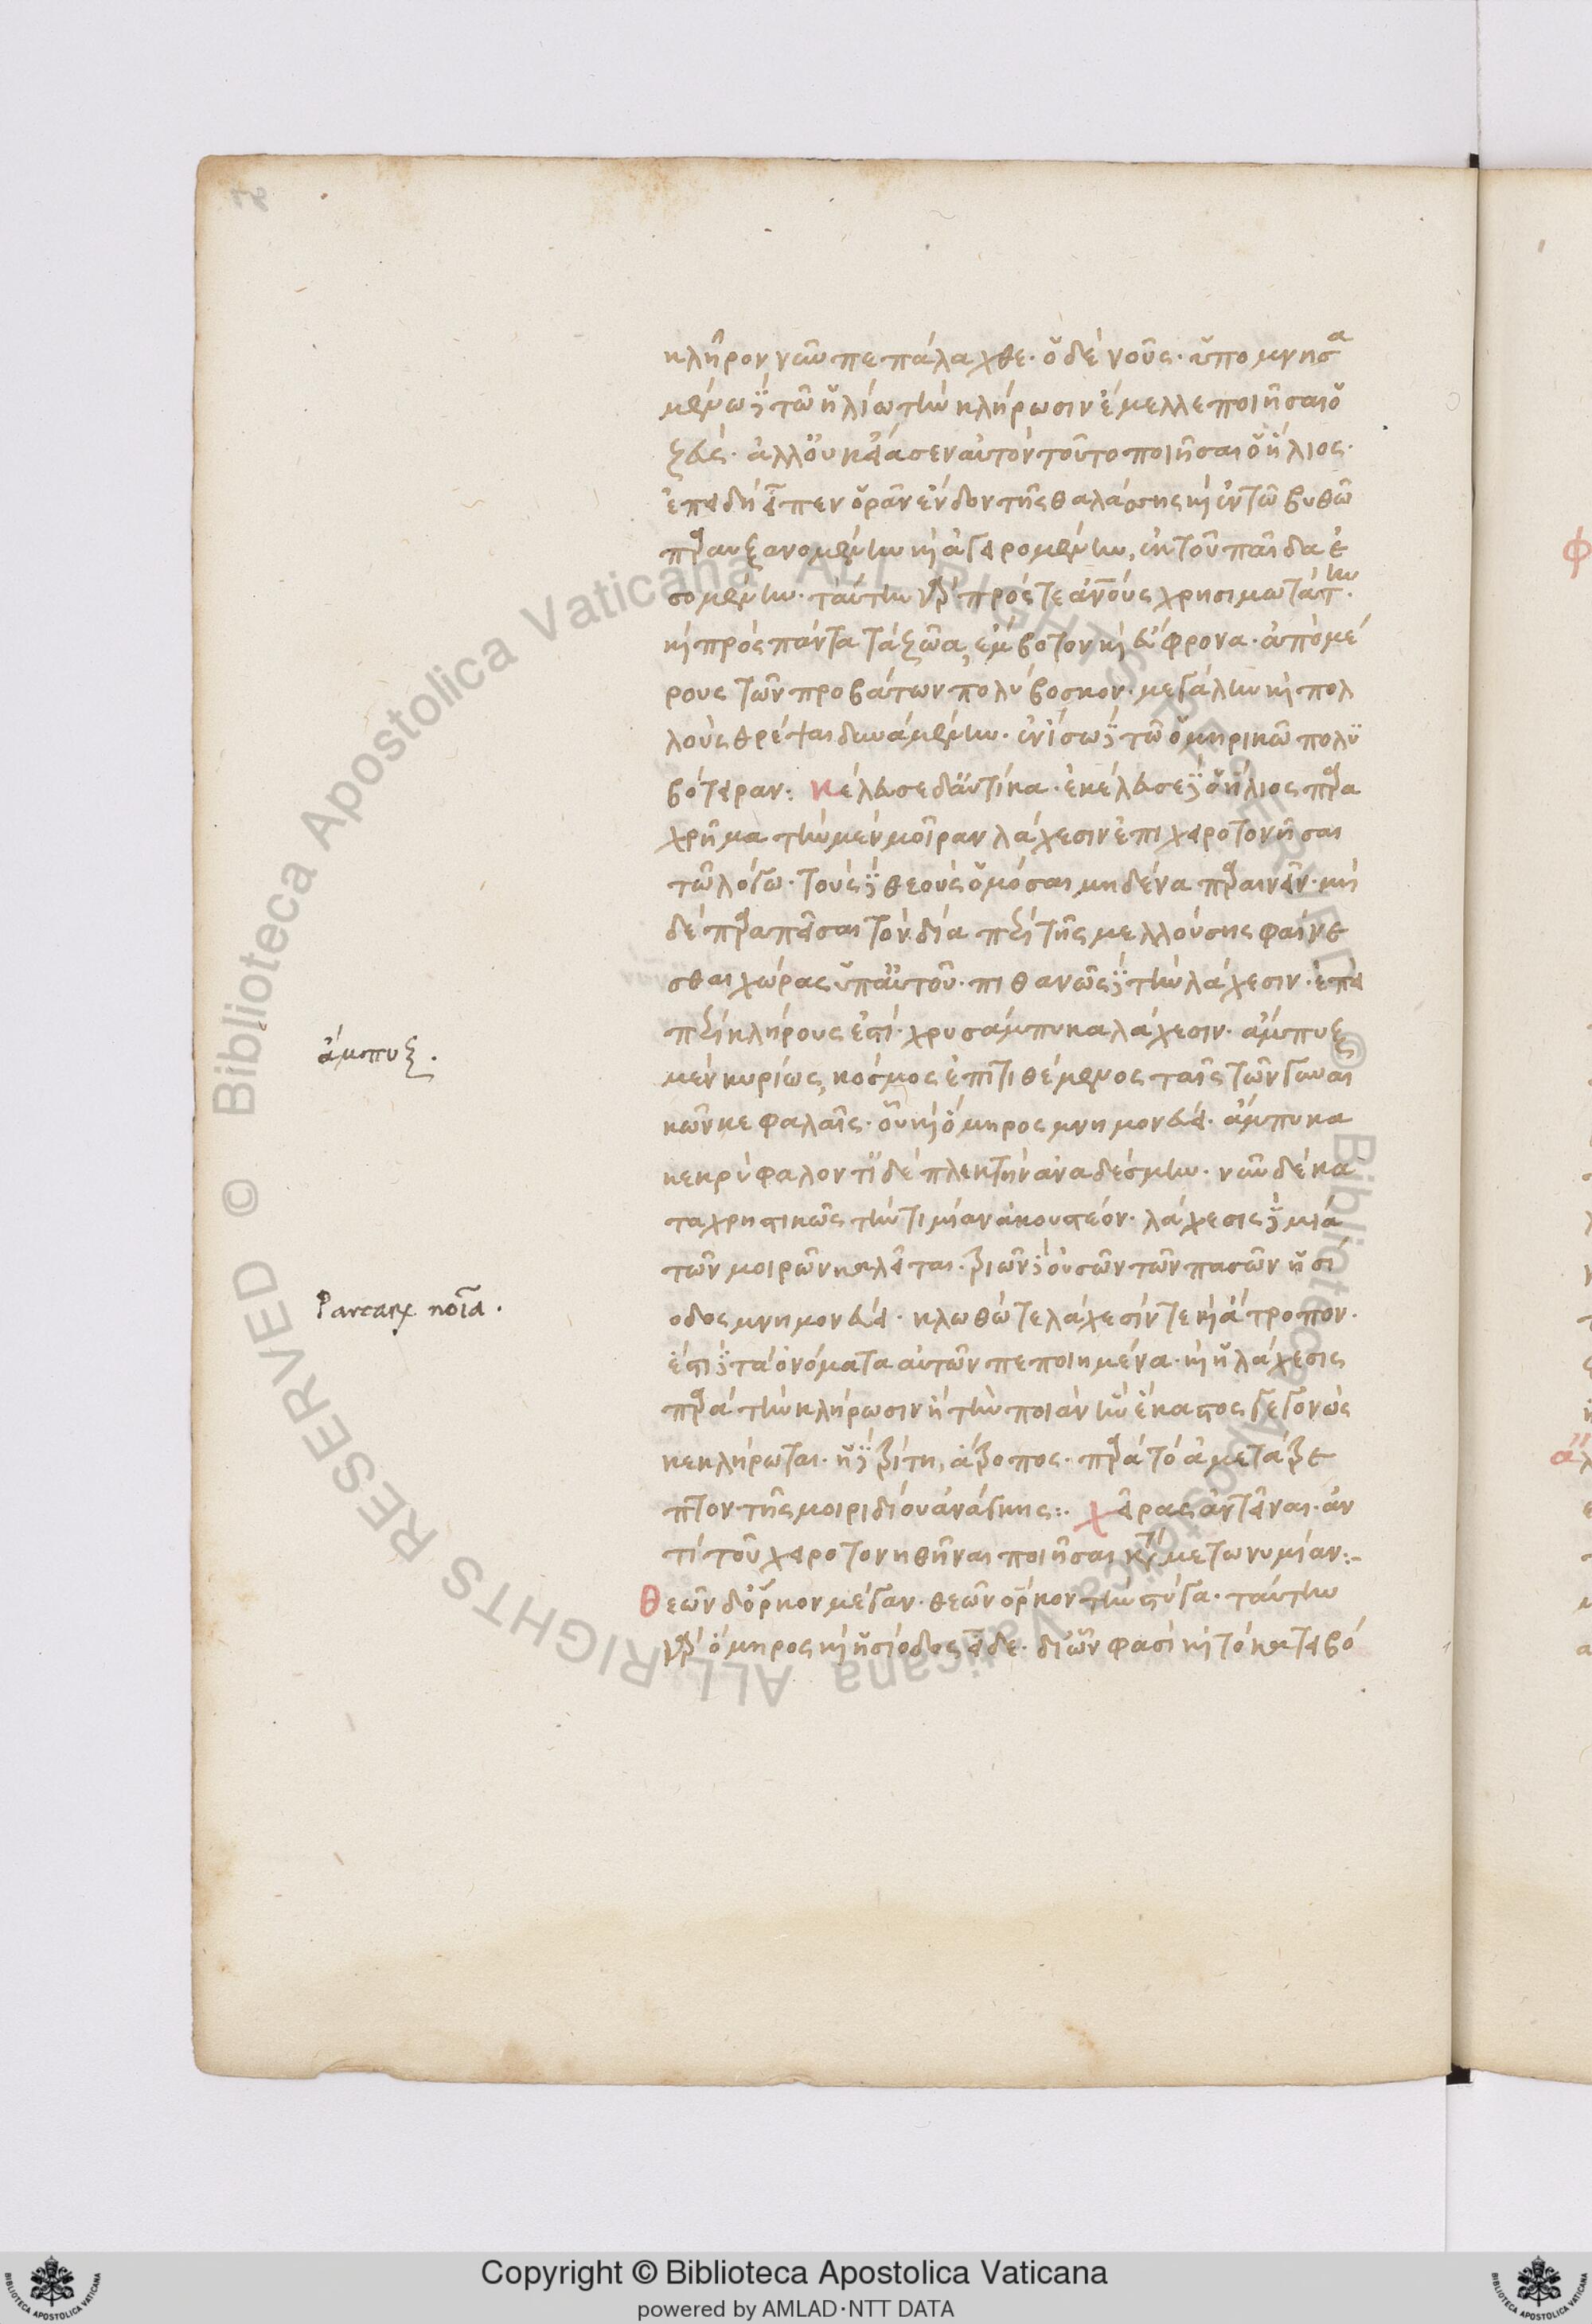 κλῆρον νῶϊ πεπάλαχθε· ὁ δὲ νοῦς· ὑπομνησα
μένω δὲ τῶ ἡλίω τὴν κλήρωσιν ἔμελλε ποιῆσαι ὁ
ζεύς· ἀλλ' οὐκ εἴασεν αὐτὸν τοῦτο ποιῆσαι ὁ ἥλιος·
ἐπειδὴ εἶπεν ὁρᾶν ἔνδον τῆς θαλάσσης καὶ ἐν τῶ βυθῶ
παραυξανομένην καὶ ἀγειρομένην, ἐκ τοῦ παιδα ἐ
σομένην· ταύτην γὰρ πρός τε ἀνθρώπους χρησιμωτάτην·
καὶ πρὸς πάντα τὰ ζῶα, ἔμβοτον καὶ εὔφρονα· ἀπὸ μέ
ρους τῶν προβάτων πολύβοσκον· μεγάλην καὶ πολ
λοὺς θρέψαι δυναμένην· ἐν ἴσω δὲ τῶ ὁμηρικῶ πολυ
βότειραν: κέλευσε δ' αὐτίκα· ἐκέλευσε δὲ ὁ ἥλιος παρα
χρῆμα τὴν μὲν μοῖραν λάχεσιν ἐπιχειροτονῆσαι
τῶ λόγω· τοὺς δὲ θεοὺς ὀμόσαι μηδένα παραινεῖν· μη
δὲ παραπεῖσαι τὸν δία περὶ τῆς μελλούσης φαίνε
σθαι χώρας ὑπ' αὐτοῦ· πιθανῶς δὲ τὴν λάχεσιν· ἐπεὶ
περὶ κλήρους ἐστί· χρυσάμπυκα λάχεσιν· ἄμπυξ
μὲν κυρίως, κόσμος ἐπιτιθέμενος ταῖς τῶν γυναι
κῶν κεφαλαῖς· οὗ καὶ ὅμηρος μνημονεύει· ἄμπυκα
κεκρύφαλόν τ' ἠδὲ πλεκτὴν ἀναδέσμην· νῦν δὲ κα
ταχρηστικῶς τὴν τιμίαν ἀκουστέον· λάχεσις δὲ μιὰ
τῶν μοιρῶν καλεῖται· τριῶν δὲ οὐσῶν τῶν πασῶν ἡσί
οδος μνημονεύει· κλωθώ τε λάχεσίν τε καὶ ἄτροπον·
ἔστι δὲ τὰ ὀνόματα αὐτῶν πεποιημένα· καὶ ἡ λάχεσις
παρὰ τὴν κλήρωσιν ἢ τὴν ποιὰν ἣν ἕκαστος γεγονὼς
κεκλήρωται· ἡ δὲ τρίτη, ἄτροπος· παρὰ τὸ ἀμετάτρε
πτον τῆς μοιριδίου ἀνάγκης:. χεῖρας ἀντεῖναι· ἀν
τὶ τοῦ χειροτονηθῆναι ποιῆσαι κατὰ μετωνυμίαν:-
θεῶν δ' ὅρκον μέγαν· θεῶν ὅρκον τὴν στύγα· ταύτην
γὰρ ὅμηρος καὶ ἡσίοδος εἶδε· δι' ὧν φασὶ καὶ τὸ κατειβό
ἄμπυξ.
Parcarum noīa.